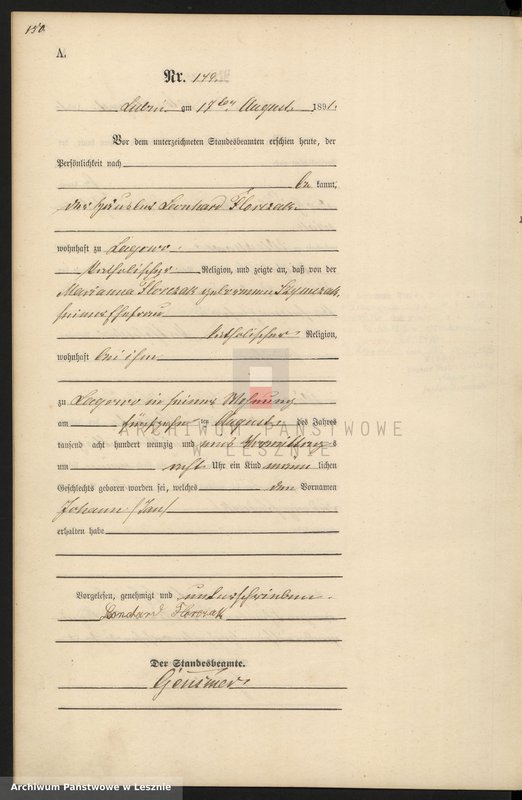 150.
A.
Nr. 149.
Lubin am 17ten August 1891.
Vor dem unterzeichneten Standesbeamten erschien heute, der
Persönlichkeit nach
be kannt,
der Häusler Leonhard Florczak
wohnhaft zu Lagowo
katholischer Religion, und zeigte an, daß von der
Marianna Florczak geborenen Szymczak,
seiner Ehefrau
katholischer Religion,
wohnhaft bei ihm
zu Lagowo in seiner Wohnung
am fünfzehnten August des Jahres
tausend acht hundert neunzig und eins Vormittags
um acht Uhr ein Kind männlichen
Geschlechts geboren worden sei, welches den Vornamen
Johann /Jan/
erhalten habe
Vorgelesen, genehmigt und unterschrieben.
Leonhard Florczak
Der Standesbeamte.
ARCHIWUM PAŃSTWOWE
W LESZNIE
Archiwum Państwowe w Lesznie